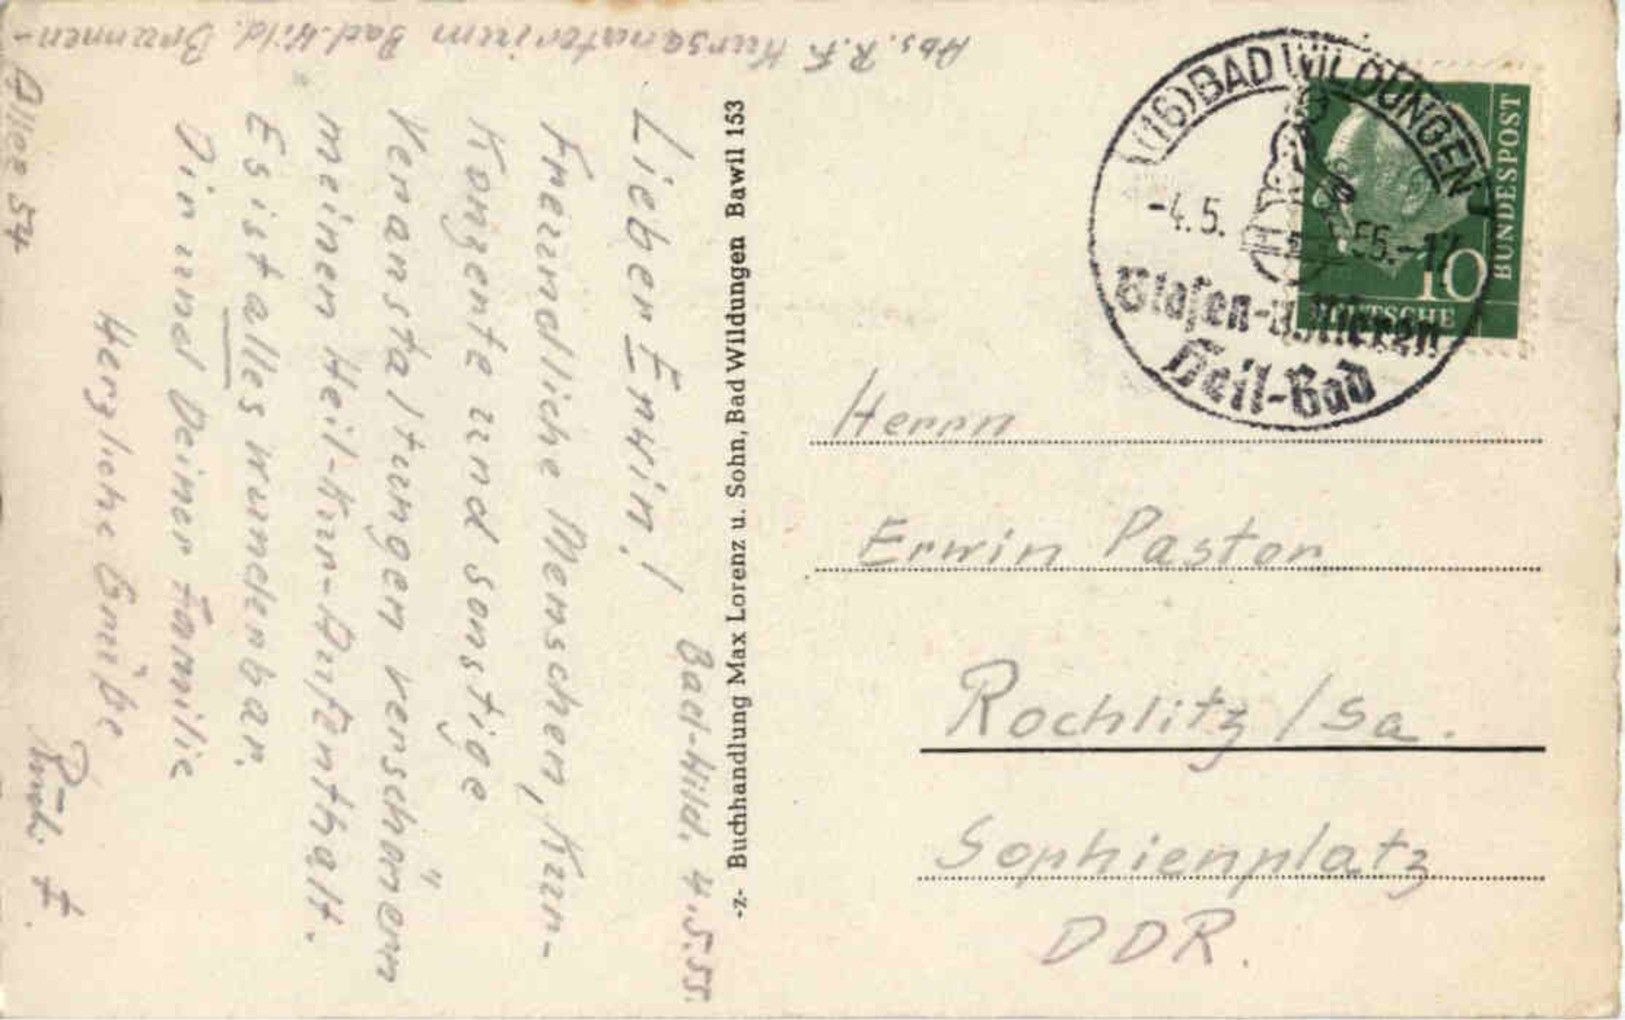 Abs. R.F. Kursanatorium Bad-Wild. Brunnen-
Allee 54
Bad-Wild. 4.5.55.
Lieber Erwin!
Freundliche Menschen, Kur-
konzerte und sonstige
Veranstaltungen verschönern
meinen Heil-Kur-Aufenthalt.
Es ist alles wunderbar.
Dir und Deiner Familie
Herzliche Grüße
F.
-z- Buchhandlung Max Lorenz u. Sohn, Bad Wildungen Bawil 153
(16) BAD WILDUNGEN
-4.5.55.-17
Blasen-u. Nieren
Heil-Bad
10
DEUTSCHE
BUNDESPOST
Herrn
Erwin Pastor
Rochlitz /Sa.
Sophienplatz
DDR.